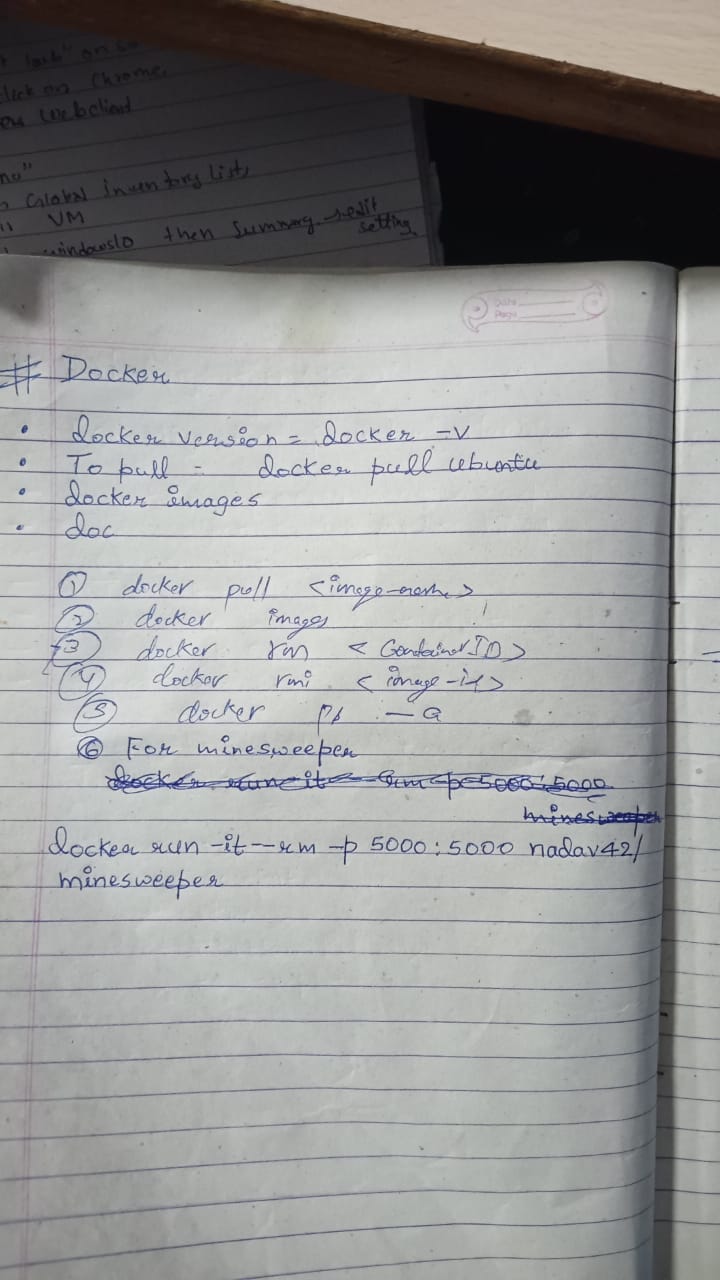 on so
click on Chrome.
webclient
Global inventory lists
VM
windows10 then Summary → edit
setting
Date
Page
# Docker
• docker version = docker -v
• To pull = docker pull ubuntu
• docker images
• doc
① docker pull <image-name>
② docker images
③ docker rm < Container ID>
④ docker rmi < image-id>
⑤ docker ps - a
⑥ For minesweeper
docker run it - rm -p 5000:5000
minesweeper
docker run -it --rm -p 5000:5000 nadav42/
minesweeper